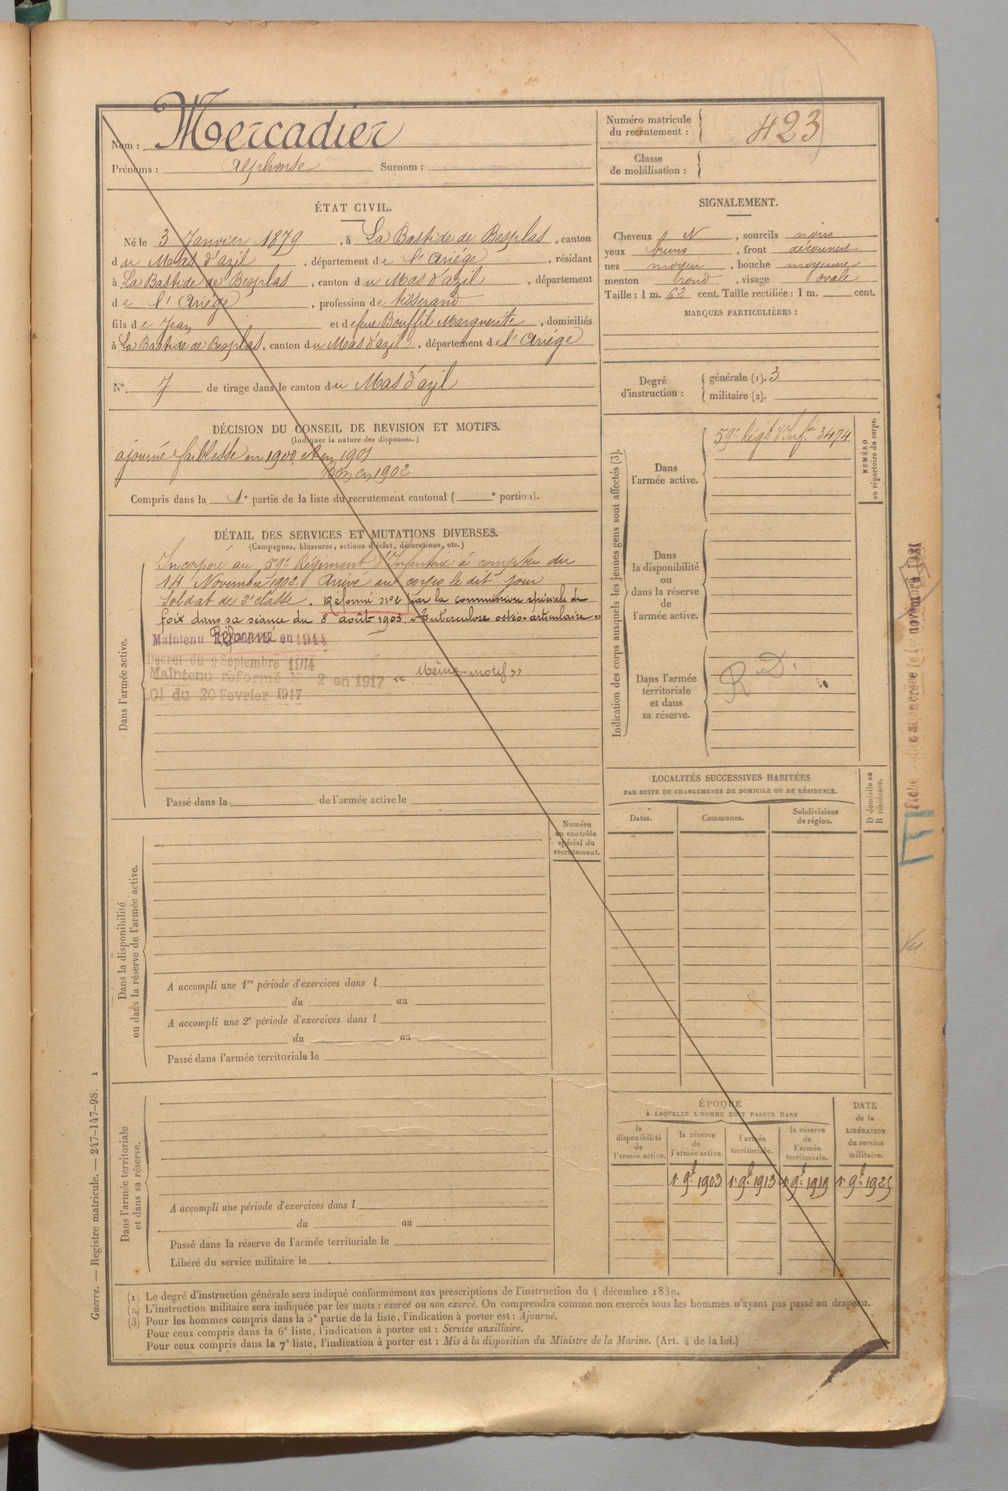 Nom : Mercadier
Prénoms : Alphonse Surnom :
Numéro matricule du recrutement : 423
Classe de mobilisation :
ÉTAT CIVIL.
Né le 3 Janvier 1879, à La Bastide de Besplas, canton
du Mas d'azil, département de l'Ariège, résidant
à La Bastide de Besplas, canton du Mas d'azil, département
de l'Ariège, profession de tisserand
fils de Jean et de feue Bouffil Marguerite, domiciliés
à La Bastide de Besplas, canton du Mas d'azil, département de l'Ariège
N° 7 de tirage dans le canton du Mas d'azil
SIGNALEMENT.
Cheveux N, sourcils noirs
yeux bruns, front découvert
nez moyen, bouche moyenne
menton rond, visage ovale
Taille : 1 m. 62 cent. Taille rectifiée : 1 m. cent.
MARQUES PARTICULIÈRES :
Degré d'instruction : générale (1). 3
militaire (2).
DÉCISION DU CONSEIL DE REVISION ET MOTIFS.
(Indiquer la nature des dispenses.)
ajourné faiblesse en 1900 et en 1901
Bon en 1902
Compris dans la 1e partie de la liste du recrutement cantonal ( e portion).
DÉTAIL DES SERVICES ET MUTATIONS DIVERSES.
(Campagnes, blessures, actions d'éclat, décorations, etc.)
Dans l'armée active.
Incorporé au 59e Régiment d'Infanterie à compter du
14 Novembre 1902. Arrivé au corps le dit jour
Soldat de 2e classe. Réformé n° 2 par la commission spéciale de
foix dans sa séance du 8 août 1903 « Tuberculose ostéo-articulaire »
Réformé
Maintenu en 1914
Décret du 9 Septembre 1914
Maintenu réformé N° 2 en 1917 « Même motif »
LOI du 20 Février 1917
Passé dans la de l'armée active le
Indication des corps auxquels les jeunes gens sont affectés (3).
NUMÉRO au répertoire du corps.
Dans l'armée active.
59e Régt d'Infie 3474
Dans la disponibilité ou dans la réserve de l'armée active.
Dans l'armée territoriale et dans sa réserve.
R.D.
LOCALITÉS SUCCESSIVES HABITÉES
PAR SUITE DE CHANGEMENTS DE DOMICILE OU DE RÉSIDENCE.
D domicile ou R résidence.
Dates. Communes. Subdivisions de région.
Numéro au contrôle spécial du recrutement.
Dans la disponibilité ou dans la réserve de l'armée active.
A accompli une 1re période d'exercices dans l
du au
A accompli une 2e période d'exercices dans l
du au
Passé dans l'armée territoriale le
Dans l'armée territoriale et dans sa réserve.
A accompli une période d'exercices dans l
du au
Passé dans la réserve de l'armée territoriale le
Libéré du service militaire le
ÉPOQUE
À LAQUELLE L'HOMME DOIT PASSER DANS
DATE de la LIBÉRATION du service militaire.
la disponibilité de l'armée active. la réserve de l'armée active. l'armée territoriale. la réserve de l'armée territoriale.
1er 9bre 1903 1er 9bre 1913 1er 9bre 1919 1er 9bre 1925
(1) Le degré d'instruction générale sera indiqué conformément aux prescriptions de l'instruction du 4 décembre 1889.
(2) L'instruction militaire sera indiquée par les mots : exercé ou non exercé. On comprendra comme non exercés tous les hommes n'ayant pas passé au drapeau.
(3) Pour les hommes compris dans la 5e partie de la liste, l'indication à porter est : Ajourné.
Pour ceux compris dans la 6e liste, l'indication à porter est : Service auxiliaire.
Pour ceux compris dans la 7e liste, l'indication à porter est : Mis à la disposition du Ministre de la Marine. (Art. 4 de la loi.)
Guerre. — Registre matricule. — 247-147-98. 1
Vu